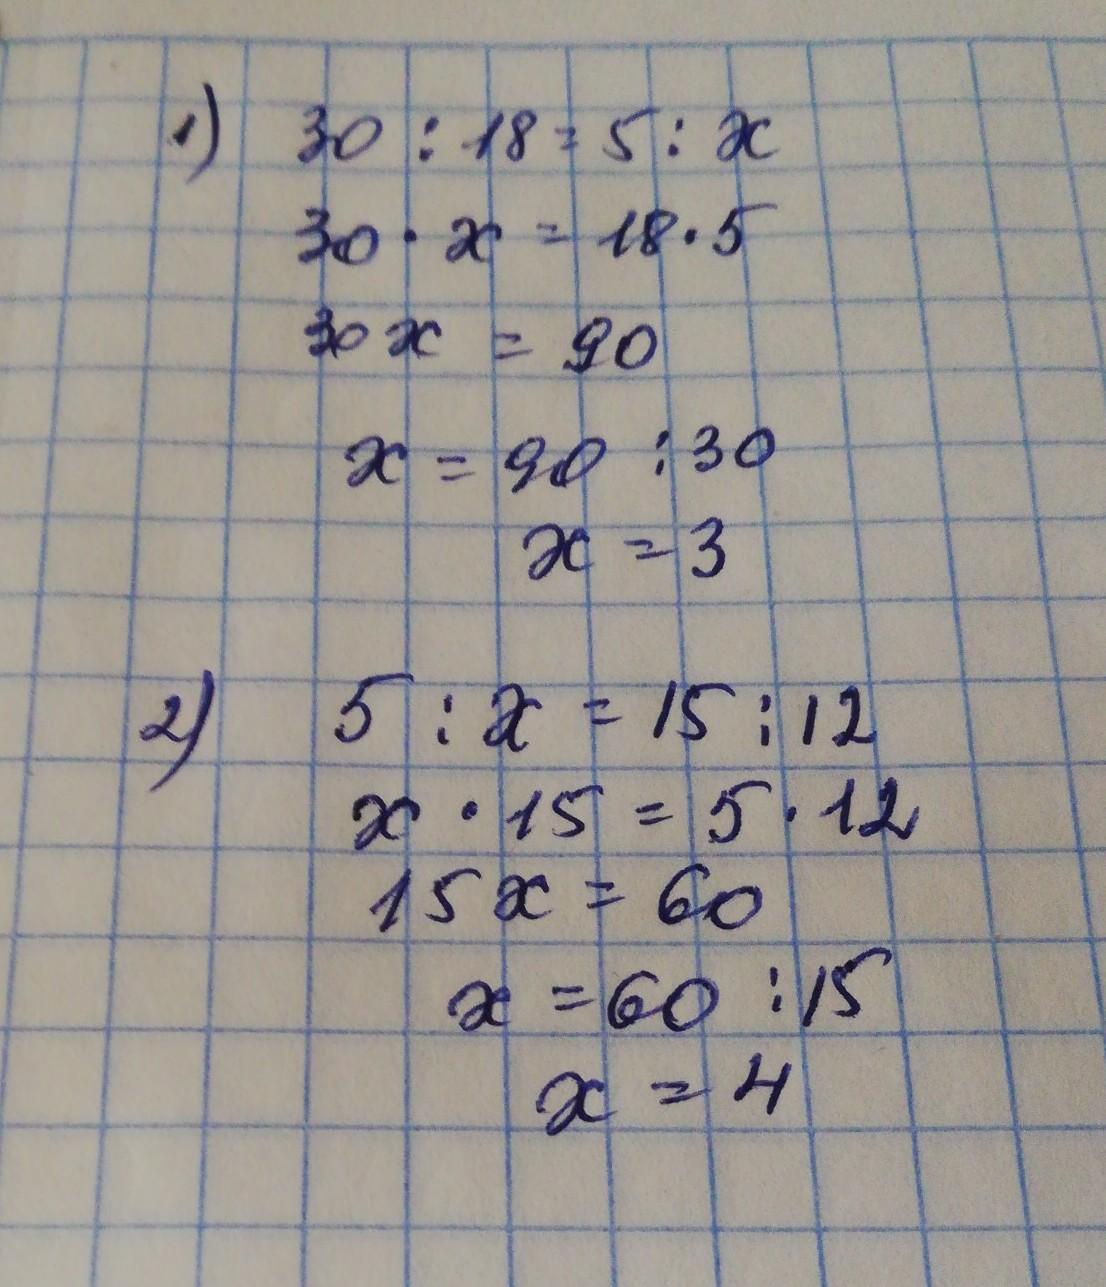 1) 30 : 18 = 5 : x
30 · x = 18 · 5
30x = 90
x = 90 : 30
x = 3
2) 5 : x = 15 : 12
x · 15 = 5 · 12
15x = 60
x = 60 : 15
x = 4